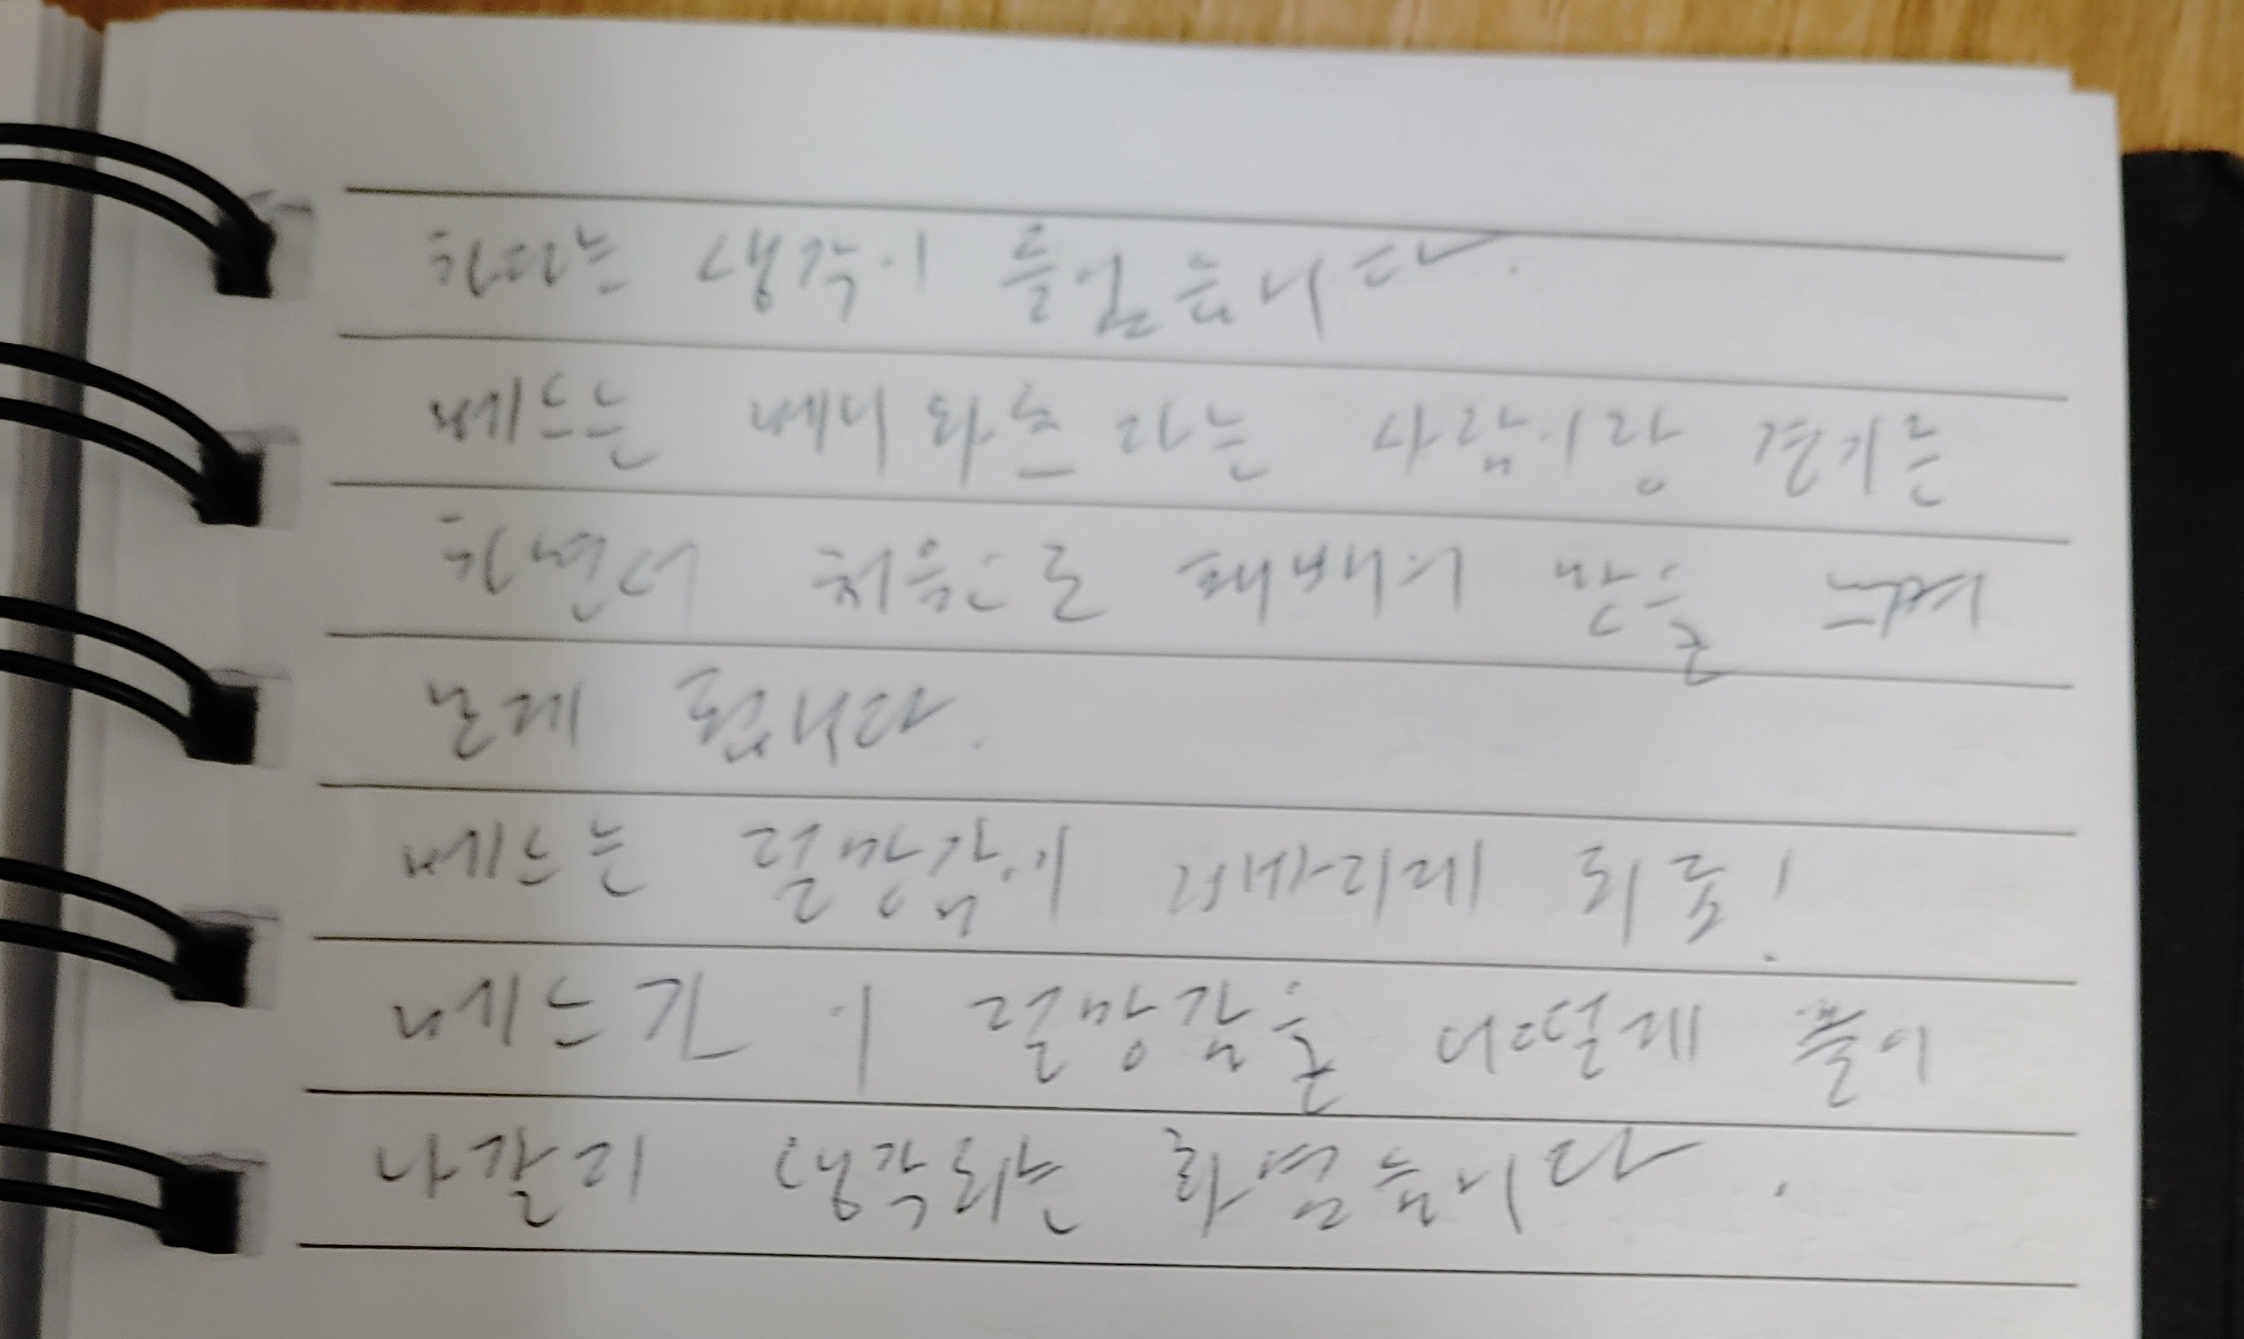 하다는 생각이 들었습니다.
베드는 베니와츠라는 사람이랑 경기를
하면서 처음으로 패배의 맛을 느껴
보게 됩니다.
베드는 절망감이 휩싸이게 되죠!
베드가 이 절망감을 어떻게 풀어
나갈지 생각하는 화였습니다.